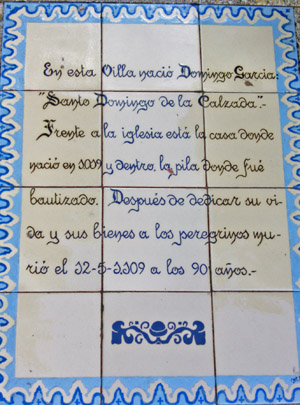 En esta Villa nació Domingo Garcia:
"Santo Domingo de la Calzada".-
Frente a la iglesia está la casa donde
nació en 1009 y dentro, la pila donde fué
bautizado. Después de dedicar su vi-
da y sus bienes a los peregrinos mu-
rió el 12-5-1109 a los 90 años.-